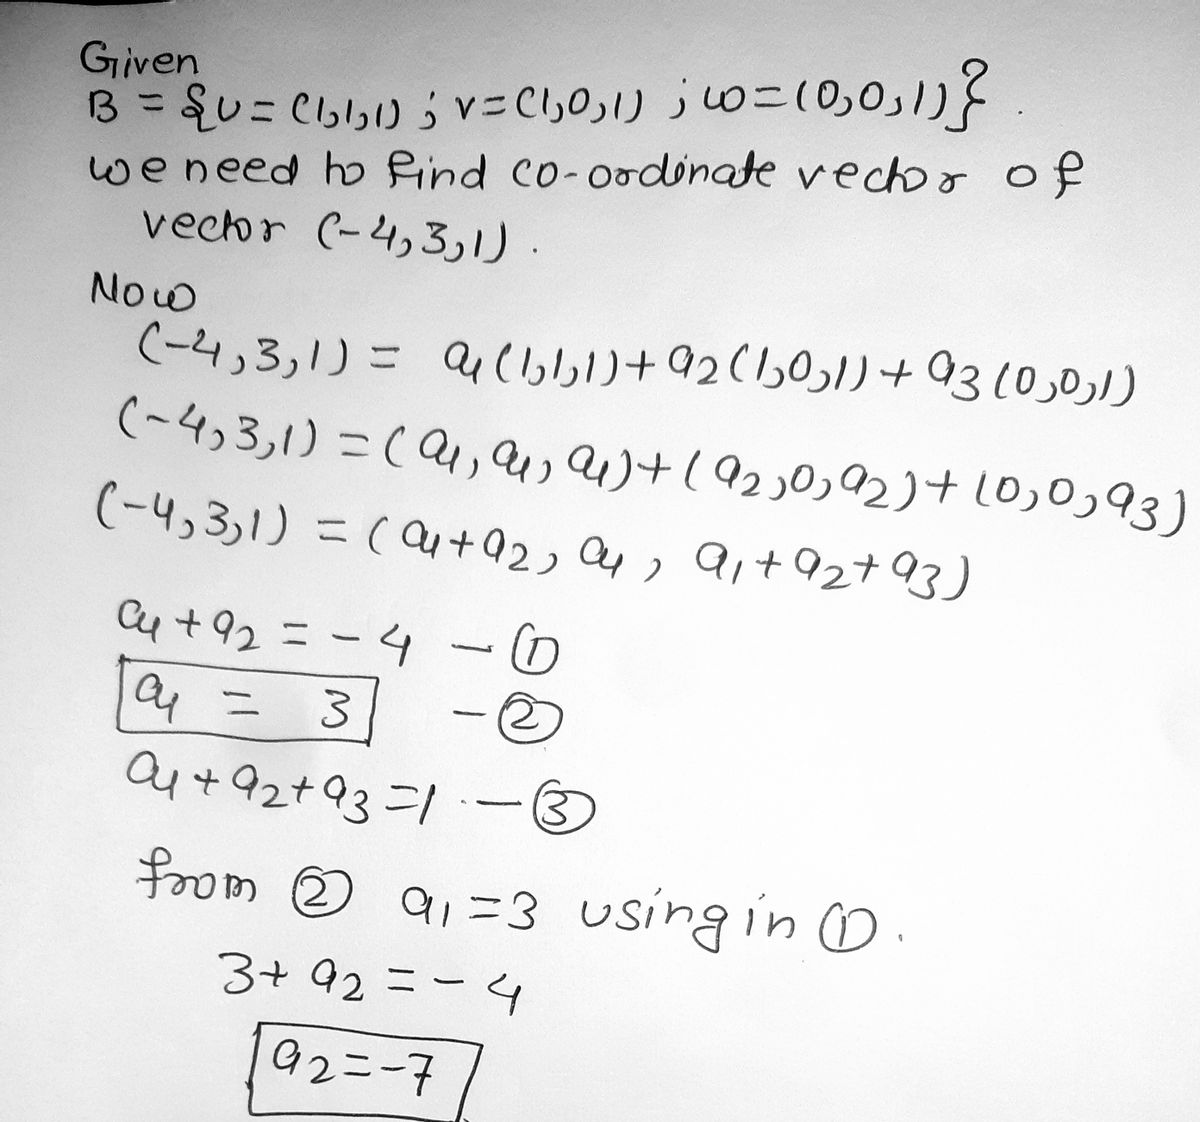 Given
B = {u = (1,1,1) ; v=(1,0,1) ; w=(0,0,1)} .
we need to find co-ordinate vector of
vector (-4,3,1) .
Now
(-4,3,1) = a1(1,1,1)+a2(1,0,1)+a3(0,0,1)
(-4,3,1) = (a1,a1,a1)+(a2,0,a2)+(0,0,a3)
(-4,3,1) = (a1+a2, a1, a1+a2+a3)
a1+a2 = -4 - ①
a1 = 3 - ②
a1+a2+a3=1 .- ③
from ② a1=3 using in ① .
3+ a2 = -4
a2=-7